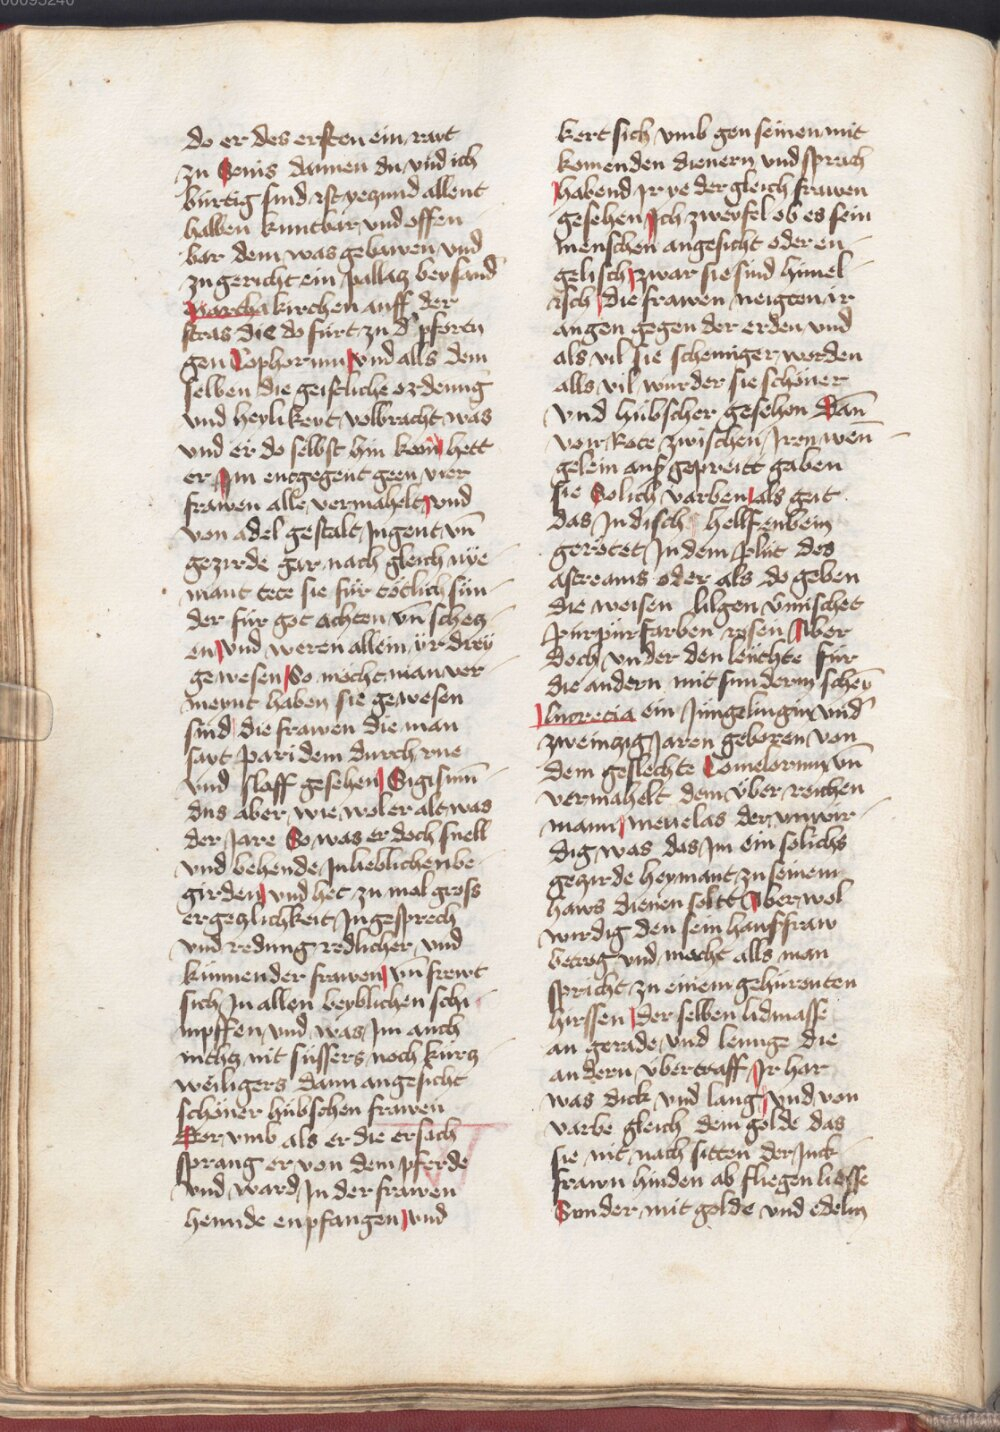 00095240
do er des ersten ein rayt
zu Senis dannen du vnd ich
bürtig sind ist yezund allent
halben kuntbar vnd offen
bar dem was gebawen vnd
zu gericht ein pallatz bey sand
Martha kirchen auff der
stras die do fürt zu d' pforten
gen Tophorum vnd alls dem
selben die geistliche ordenūg
vnd heylikeyt volbracht was
vnd er do selbst hin kom hett
er Im entgegent geen vier
frawen alle vermahelt vnd
von adel gestalt Jugent vn̄
gezirde gar nach gleich nye
mant tete sie für tötlich sün
der für got achten vn̄ schetz
en vnd weren allein ir drey
gewesen So möcht man ver
meynt haben sie gewesen
sind die frawen die man
sayt paridem durch rue
vnd slaff gesehen Sigismū
dus aber wie wol er alt was
der Jare So was er doch snell
vnd behende In lieblichen be
girden vnd het zu mal gross
ergetzlichkeit In gesprech
vnd redung redlicher vnd
künnender frawen vn̄ frewt
sich In allen weyblichen schi
mpffen vnd was Im auch
nichtz nit süssers noch kürtz
weiligers dann angesicht
schöner hübschen frawen
Dor vmb als er die ersach
sprang er von dem pferde
vnd ward In der frawen
hennde enpfangen vnd
kert sich vmb gen seinen mit
komenden dienern vnd sprach
habend Ir ye der gleich frawen
gesehen Ich zweyfel ob es sein
menschen angesicht oder en
gelisch zwar sie sind himel
isch die frawen neigten ir
augen gegen der erden vnd
als vil sie schemiger worden
alls vil würder sie schöner
vnd hübscher gesehen Dan̄
von Röte zwischen Iren wen
gelein auß gepreitt gaben
sie Solich varben als geit
das Indisch hellfenbein
gerötet In dem plüt des
astreams oder als do geben
die weisen lilgen v̄mischet
purpurfarben rosen Aber
doch vnder den leüchte für
die andern mit sunderm scheī
lucrecia ein Jüngelingin vnd'
zweinzig Jaren geboren von
dem geslechte Comelorum vn̄
vermahelt dem über reichen
mann menelas der vnwir
dig was das Im ein solichs
gezirde heymant zu seinem
haws dienen soltt Aber wol
wirdig den sein hausfraw
betrog vnd macht alls man
spricht zu einem gehürnten
hirssen der selben lidmasse
an gerade vnd lennge die
andern übertraff Ir har
was dick vnd lang vnd von
varbe gleich dem golde das
sie nit nach sitten der Junck
frawn hinden ab fliegen liesse
Sunder mit golde vnd edelm